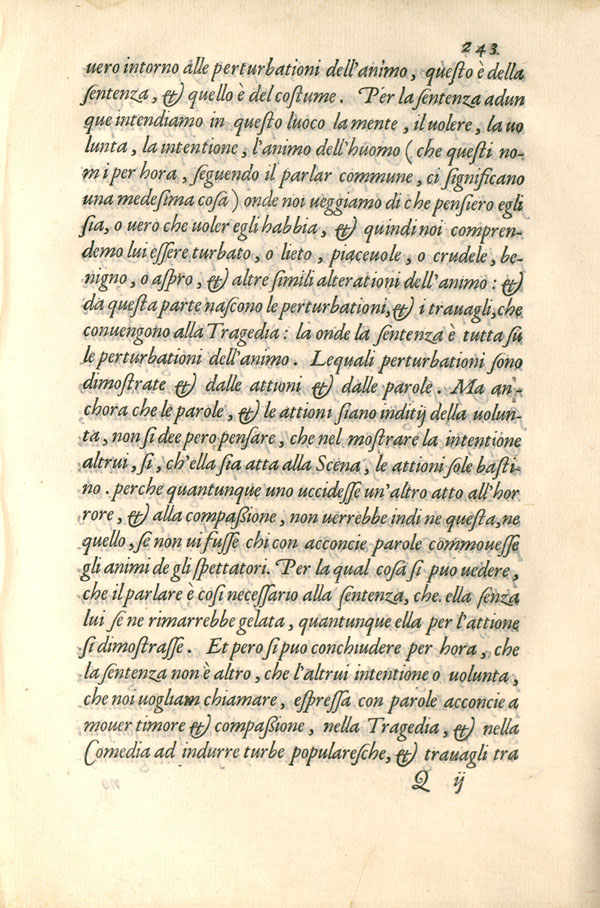 243.
uero intorno alle perturbationi dell'animo, questo è della
sentenza, & quello è del costume. Per la sentenza adun
que intendiamo in questo luoco la mente, il uolere, la uo
lunta, la intentione, l'animo dell'huomo (che questi no-
mi per hora, seguendo il parlar commune, ci significano
una medesima cosa) onde noi ueggiamo di che pensiero egli
sia, o uero che uoler egli habbia, & quindi noi compren-
demo lui essere turbato, o lieto, piaceuole, o crudele, be-
nigno, o aspro, & altre simili alterationi dell'animo: &
da questa parte nascono le perturbationi, & i trauagli, che
conuengono alla Tragedia: la onde la sentenza è tutta sù
le perturbationi dell'animo. Lequali perturbationi sono
dimostrate & dalle attioni & dalle parole. Ma an-
chora che le parole, & le attioni siano inditij della uolun-
ta, non si dee pero pensare, che nel mostrare la intentione
altrui, si, ch'ella sia atta alla Scena, le attioni sole basti-
no. perche quantunque uno uccidesse un'altro atto all'hor
rore, & alla compaßione, non uerrebbe indi ne questa, ne
quello, se non ui fusse chi con acconcie parole commouesse
gli animi de gli spettatori. Per la qual cosa si puo uedere,
che il parlare è cosi necessario alla sentenza, che ella senza
lui se ne rimarrebbe gelata, quantunque ella per l'attione
si dimostrasse. Et pero si puo conchiudere per hora, che
la sentenza non è altro, che l'altrui intentione o uolunta,
che noi uogliam chiamare, espressa con parole acconcie a
mouer timore & compaßione, nella Tragedia, & nella
Comedia ad indurre turbe popularesche, & trauagli tra
Q ij